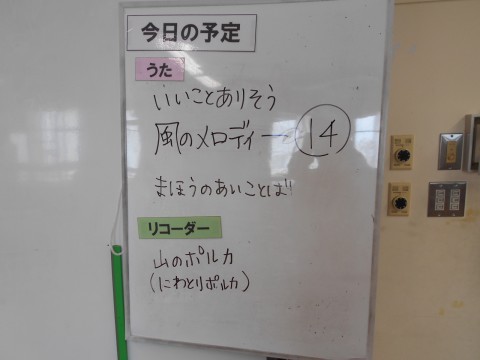 今日の予定
うた
いいことありそう
風のメロディー 14
まほうのあいことば!!
リコーダー
山のポルカ
(にわとりポルカ)